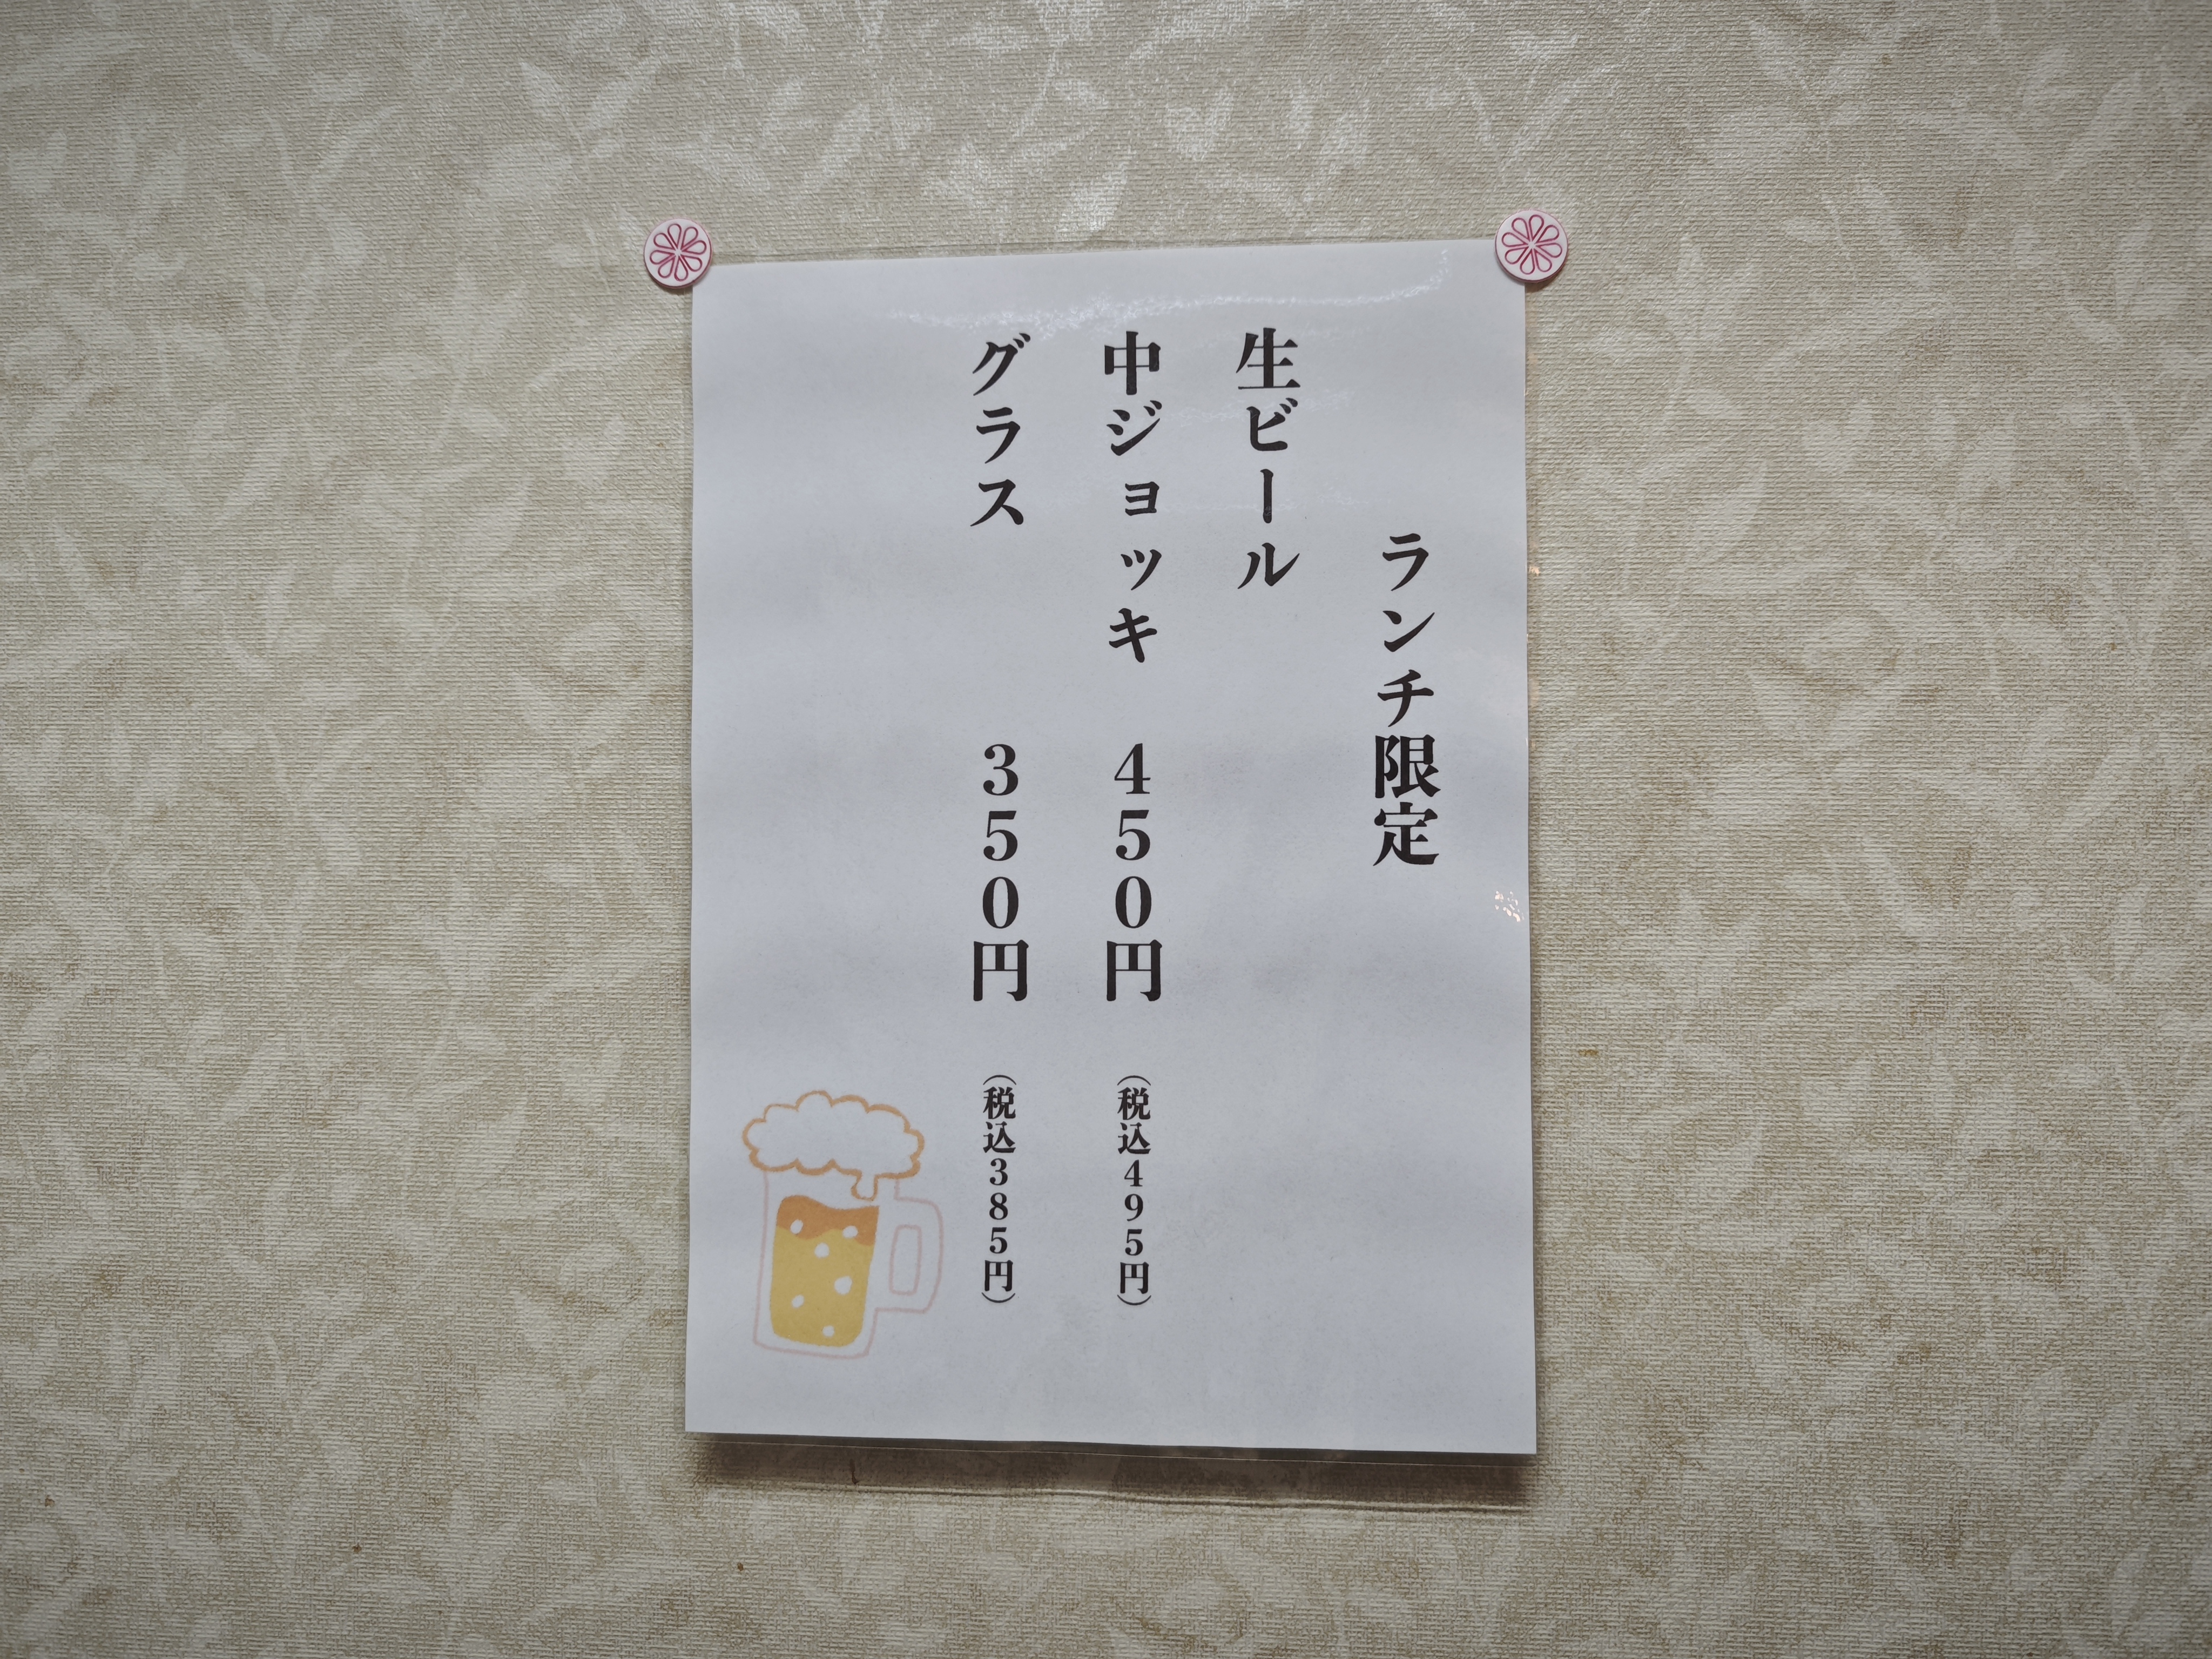 ランチ限定
生ビール
中ジョッキ　４５０円　（税込４９５円）
グラス　３５０円　（税込３８５円）